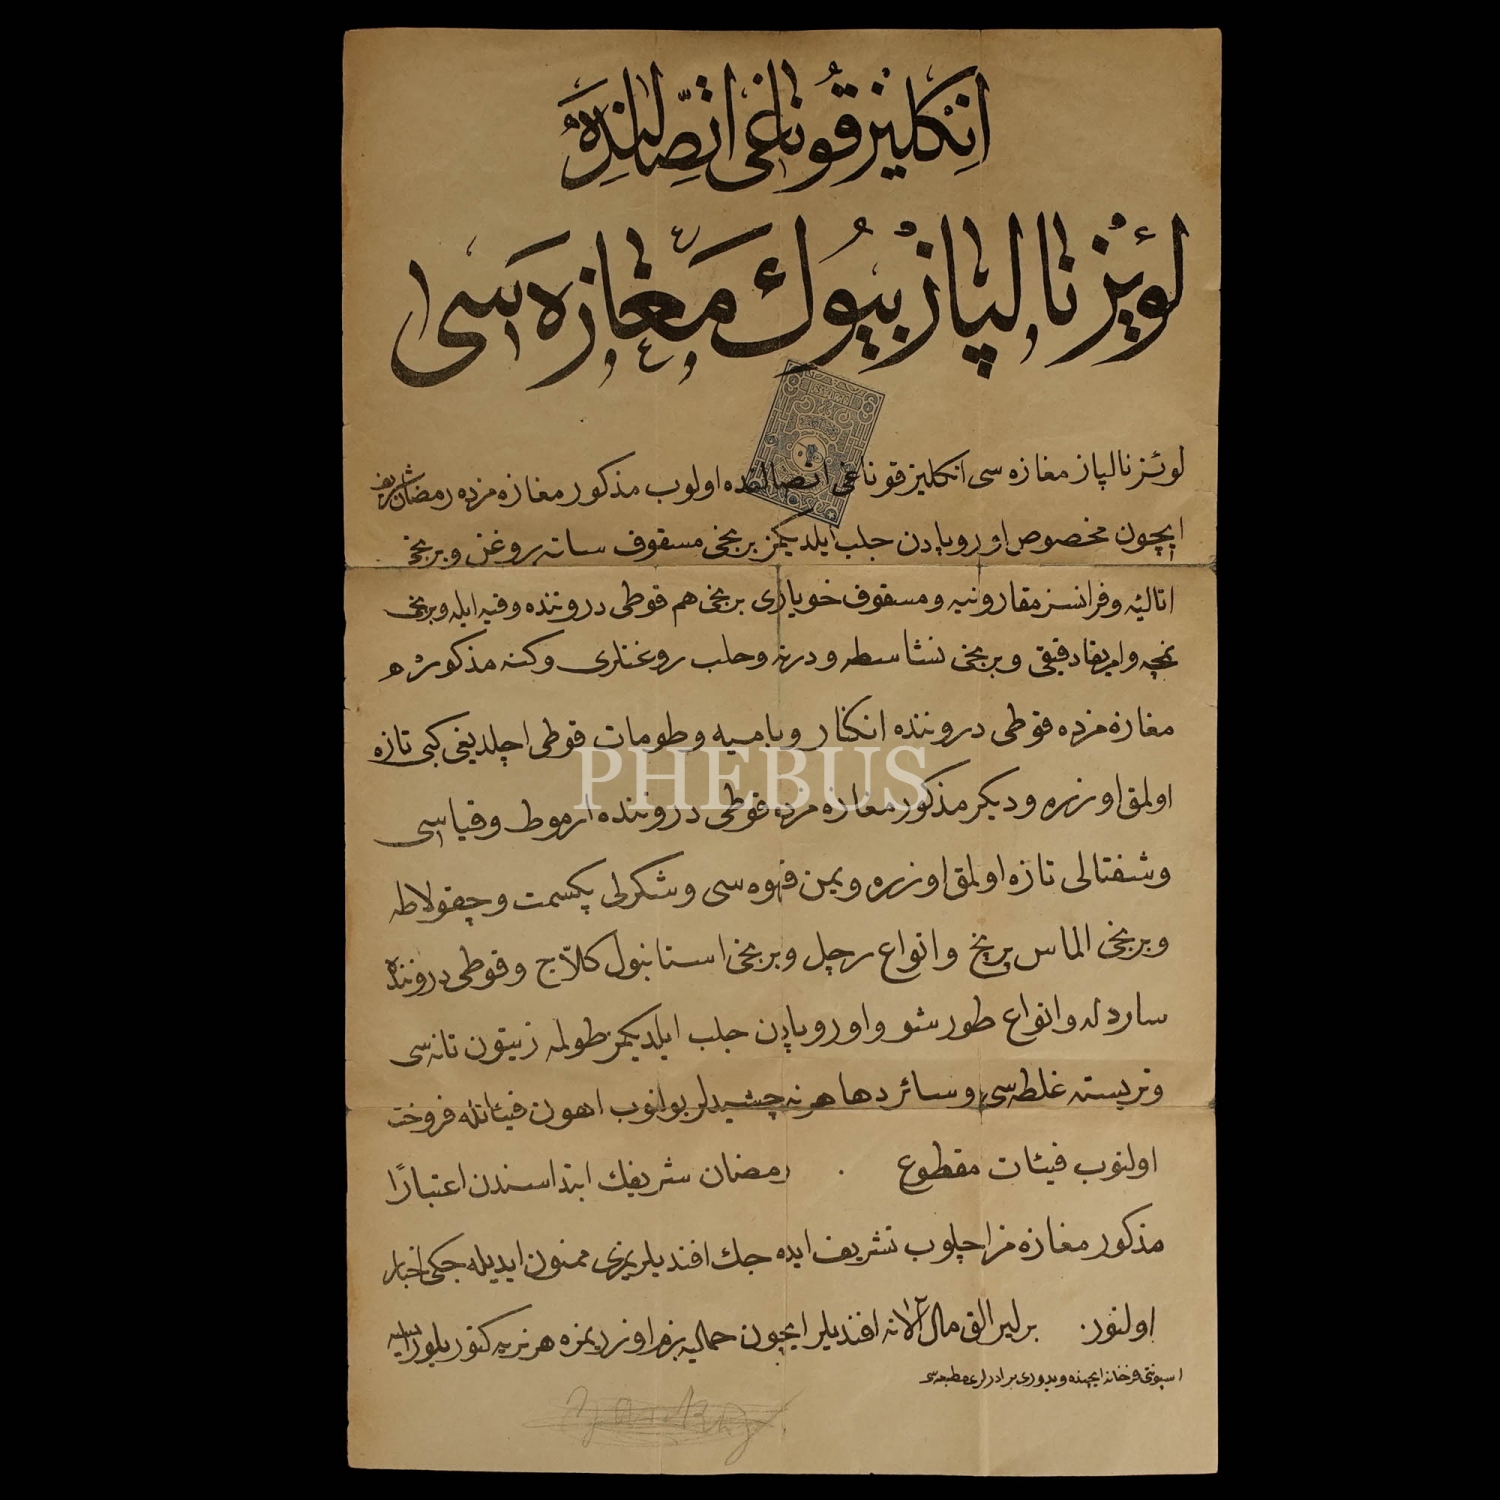 انكليز قوناغى اتصالنده
لوئيز نالپاز بيوك مغازه سى
لوئز نالپاز مغازه سى انكليز قوناغى اتصالنده اولوب مذكور مغازه مزده رمضان شريف
ايچون مخصوص اوروپادن جلب ايلديكمز برنجى مسقوف ساته روغن وبرنجى
اتاليه وفرانسز مقارونيه ومسقوف خوياري برنجى هم قوطى دروننده وقيه ايله وبرنجى
دقيقى وبرنجى نشاسطه ودرنه وحلب روغنلرى وكنه مذكور
مغازه مزده قوطى دروننده انكنار وباميه وطومات قوطى اچلديغى كبى تازه
اولمق اوزره وديكر مذكور مغازه مزده قوطى دروننده ارموط وقياسى
وشفتالى تازه اولمق اوزره ويمن قهوه سى وشكرلى پكسمت وچقولاطه
وبرنجى الماس پرنج وانواع رچل وبرنجى استانبول كلاّج وقوطى دروننده
ساردله وانواع طورشو واوروپادن جلب ايلديكمز طولمه زيتون تانه سى
وتريسته غلطه سى وسائر دها هر نه چشيدلر بولنوب اهون فيئاتله فروخت
اولنوب فيئات مقطوع . رمضان شريفك ابتداسندن اعتبارًا
مذكور مغازه مز اچلوب تشريف ايده جك افنديلريمزى ممنون ايديله جكى اخبار
اولنور. برلير الق مال آلانه افنديلر ايچون حماليه بزم اوزريمزه هر نريه كتوريلور ايسه
اسپونتى فرخانه ايچنده ويدورى برادرلرى مطبعه سى
PHEBUS